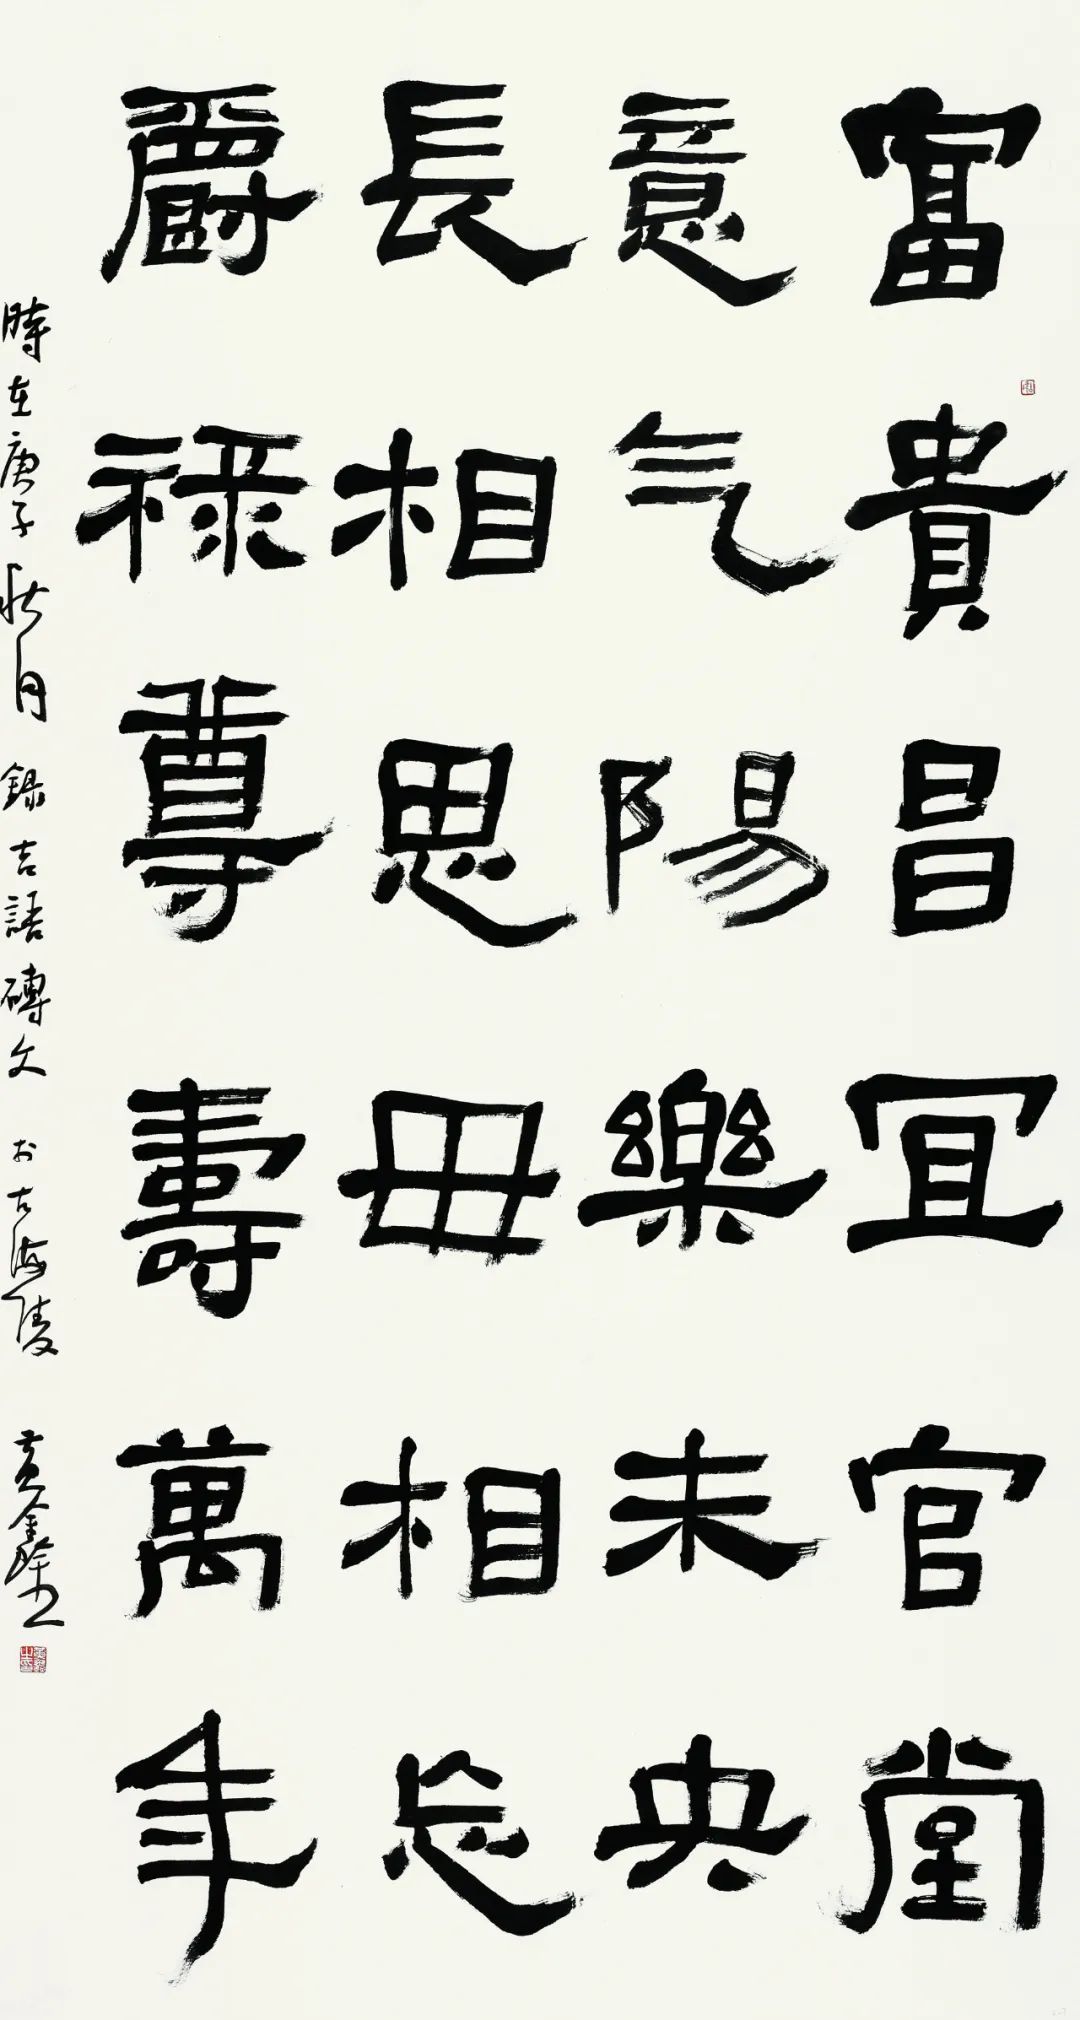 富貴昌宜官堂
意气陽樂未央
長相思毋相忘
爵祿尊壽萬年
時在庚子秋月錄吉語磚文於古海陵黃金發